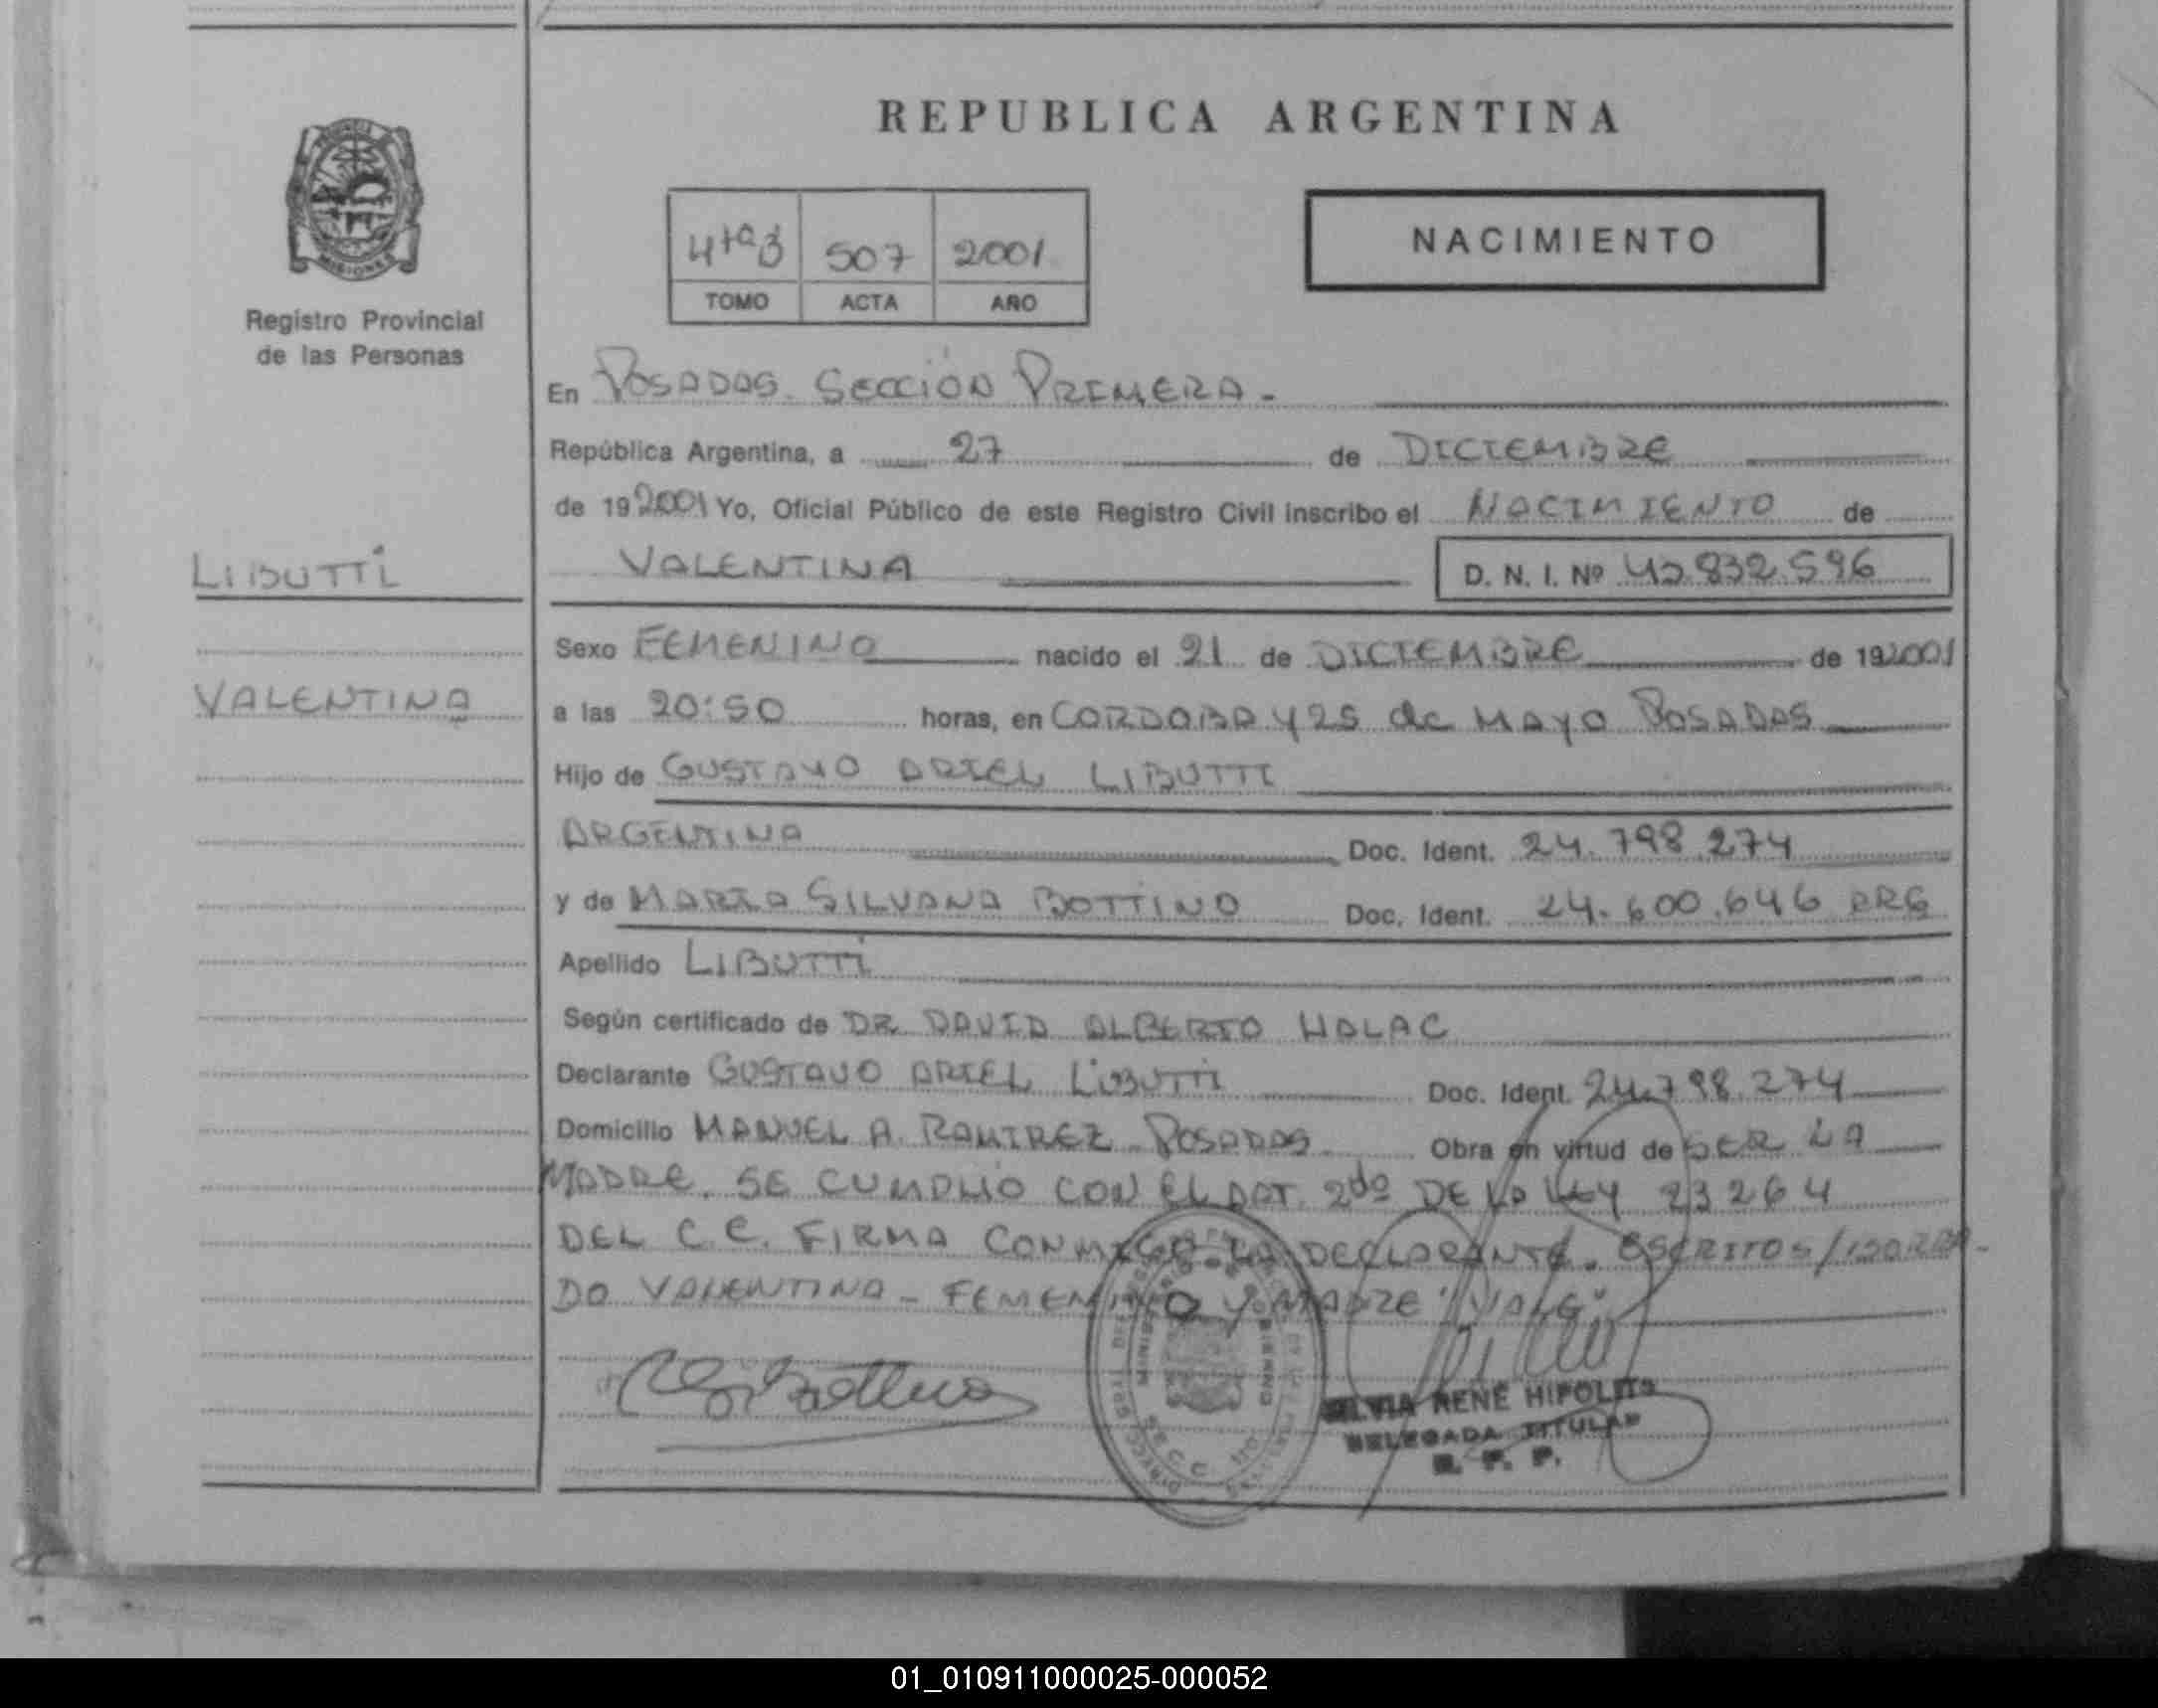 REPUBLICA ARGENTINA
NACIMIENTO
507 2001
TOMO ACTA AÑO
MISIONES
Registro Provincial
de las Personas
En POSADAS. SECCIÓN PRIMERA.
República Argentina, a 27 de DICIEMBRE
de 192001 Yo, Oficial Público de este Registro Civil inscribo el NACIMIENTO de
VALENTINA D. N. I. Nº 43.832.596
LIBUTTI
VALENTINA
Sexo FEMENINO nacido el 21 de DICIEMBRE de 192001
a las 20:50 horas, en CORDOBA Y 25 de MAYO POSADAS
Hijo de GUSTAVO ARIEL LIBUTTI
ARGENTINA Doc. Ident. 24.798.274
y de MARIA SILVANA BOTTINO Doc. Ident. 24.600.646 ARG
Apellido LIBUTTI
Según certificado de DR. DAVID ALBERTO HALAC
Declarante GUSTAVO ARIEL LIBUTTI Doc. Ident. 24.798.274
Domicilio MANUEL A. RAMIREZ POSADAS Obra en virtud de SER LA
MADRE. SE CUMPLIO CON EL ART. 2do DE LA LEY 23264
DEL C.C. FIRMA CONMIGO LA DECLARANTE. ESCRITOS/BORRA-
DO VALENTINA - FEMENINO Y MADRE "VALE"
SILVIA RENÉ HIPOLITO
DELEGADA TITULAR
R. P. P.
01_010911000025-000052